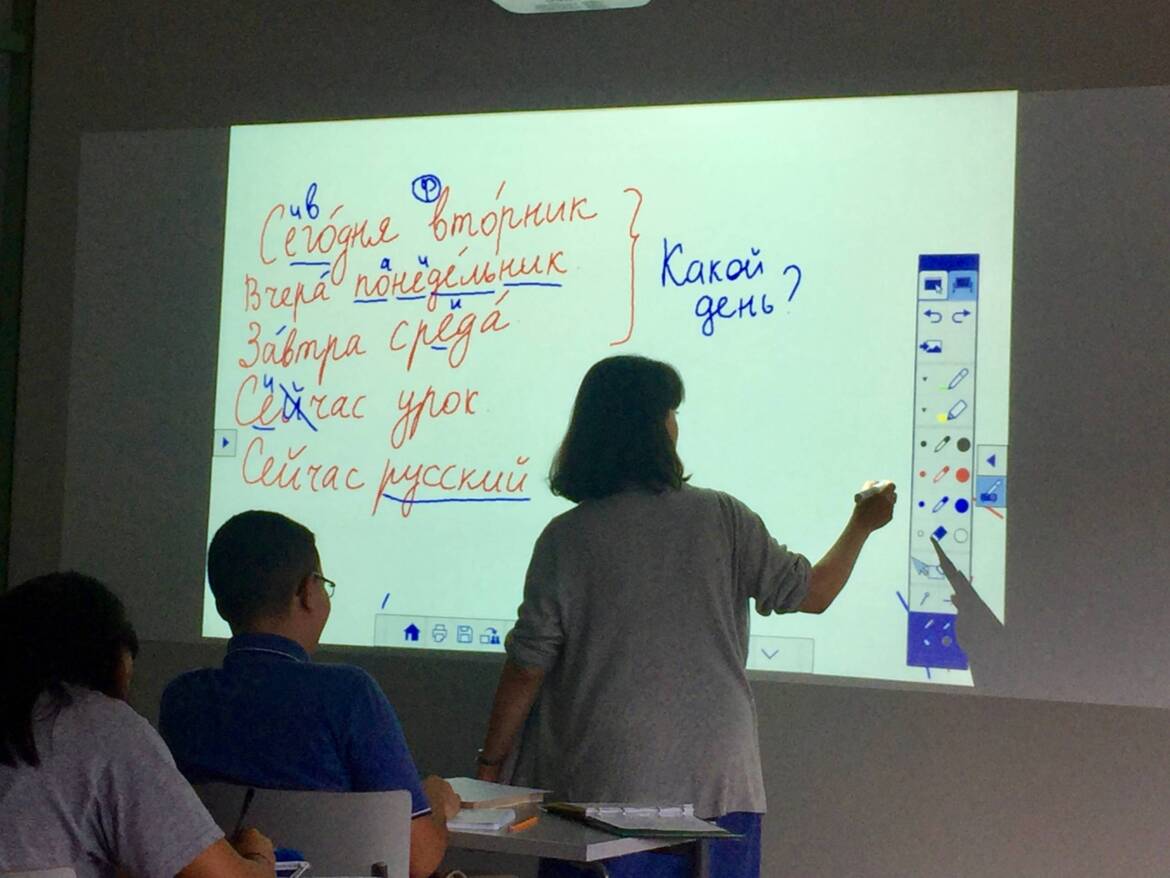 и в ф
Сего́дня вто́рник
а и
Вчера́ понеде́льник
и
За́втра среда́
и
Сейчас урок
Сейчас русский
Какой
день?